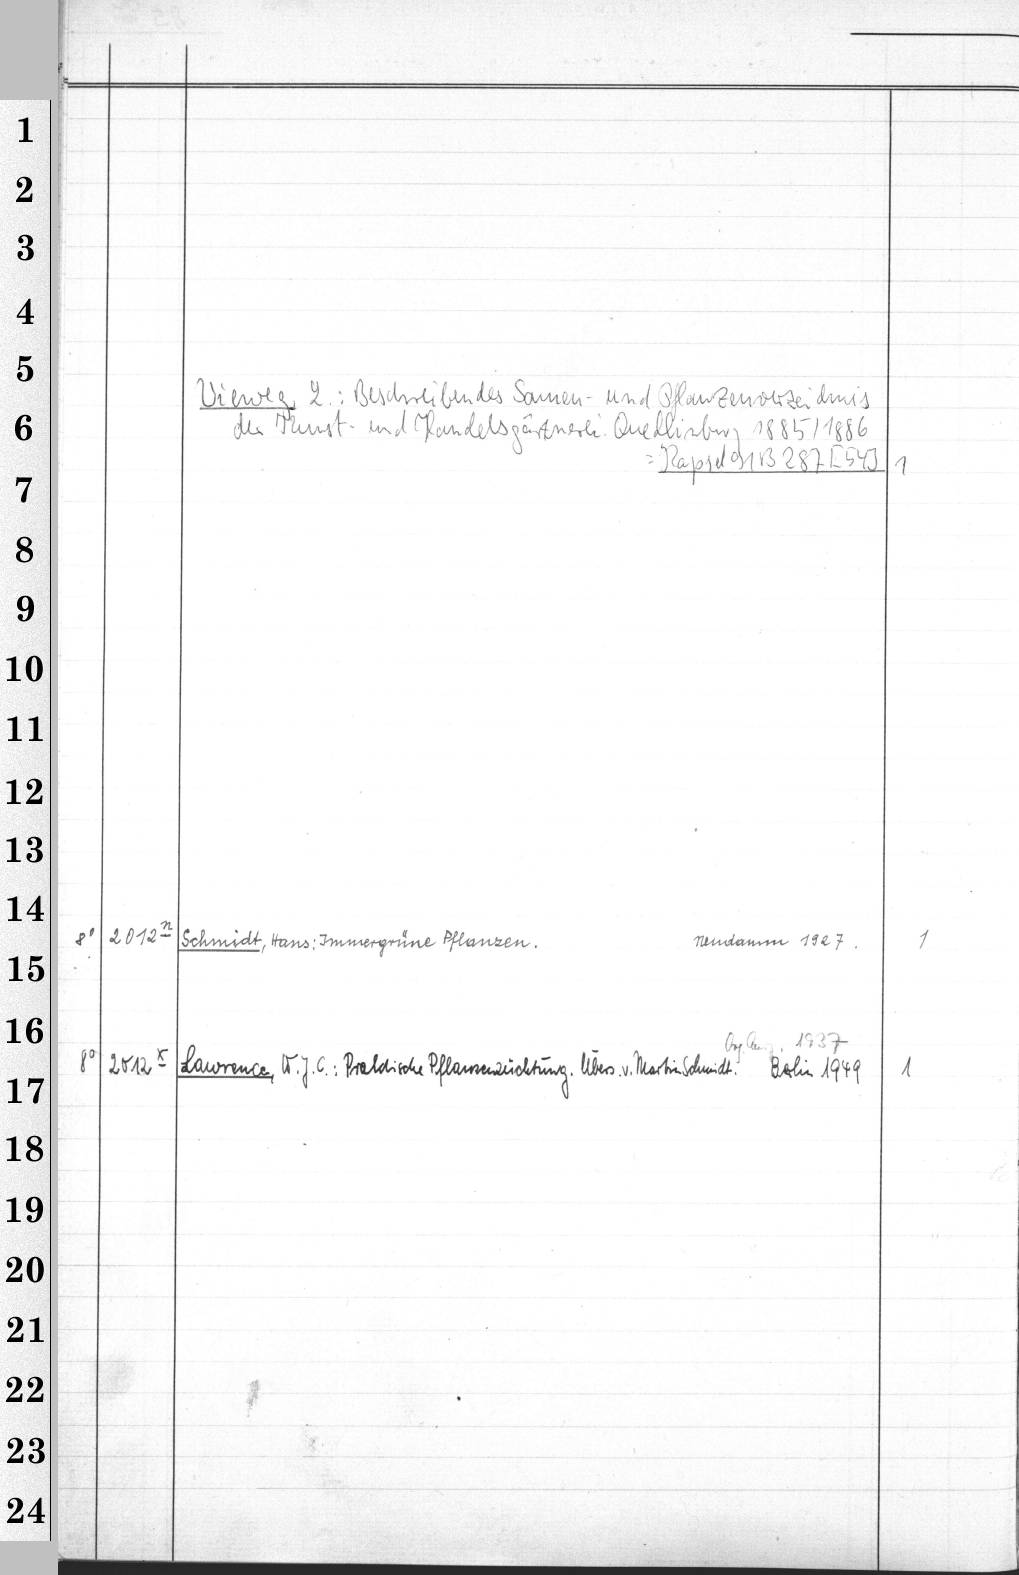 1
2
3
4
5
Vieweg, L.: Beschreibendes Samen- und Pflanzenverzeichnis
6
der Kunst- und Handelsgärtnerei. Quedlinburg 1885/1886
= Kapsel 91 B 287 [54] 1
7
8
9
10
11
12
13
14
8° 2012 n Schmidt, Hans: Immergrüne Pflanzen. Neudamm 1927. 1
15
16
1937
8° 2012 x Lawrence, W. J. C.: Praktische Pflanzenzüchtung. Übers. v. Martin Schmidt. Berlin 1949 1
17
18
19
20
21
22
23
24